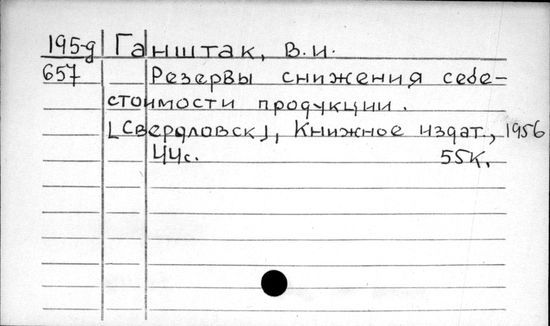 195-д Ганштак, В.И.
657 Резервы снижения себе-
стоимости продукции.
[Свердловск], Книжное издат., 1956
44с. 55к.